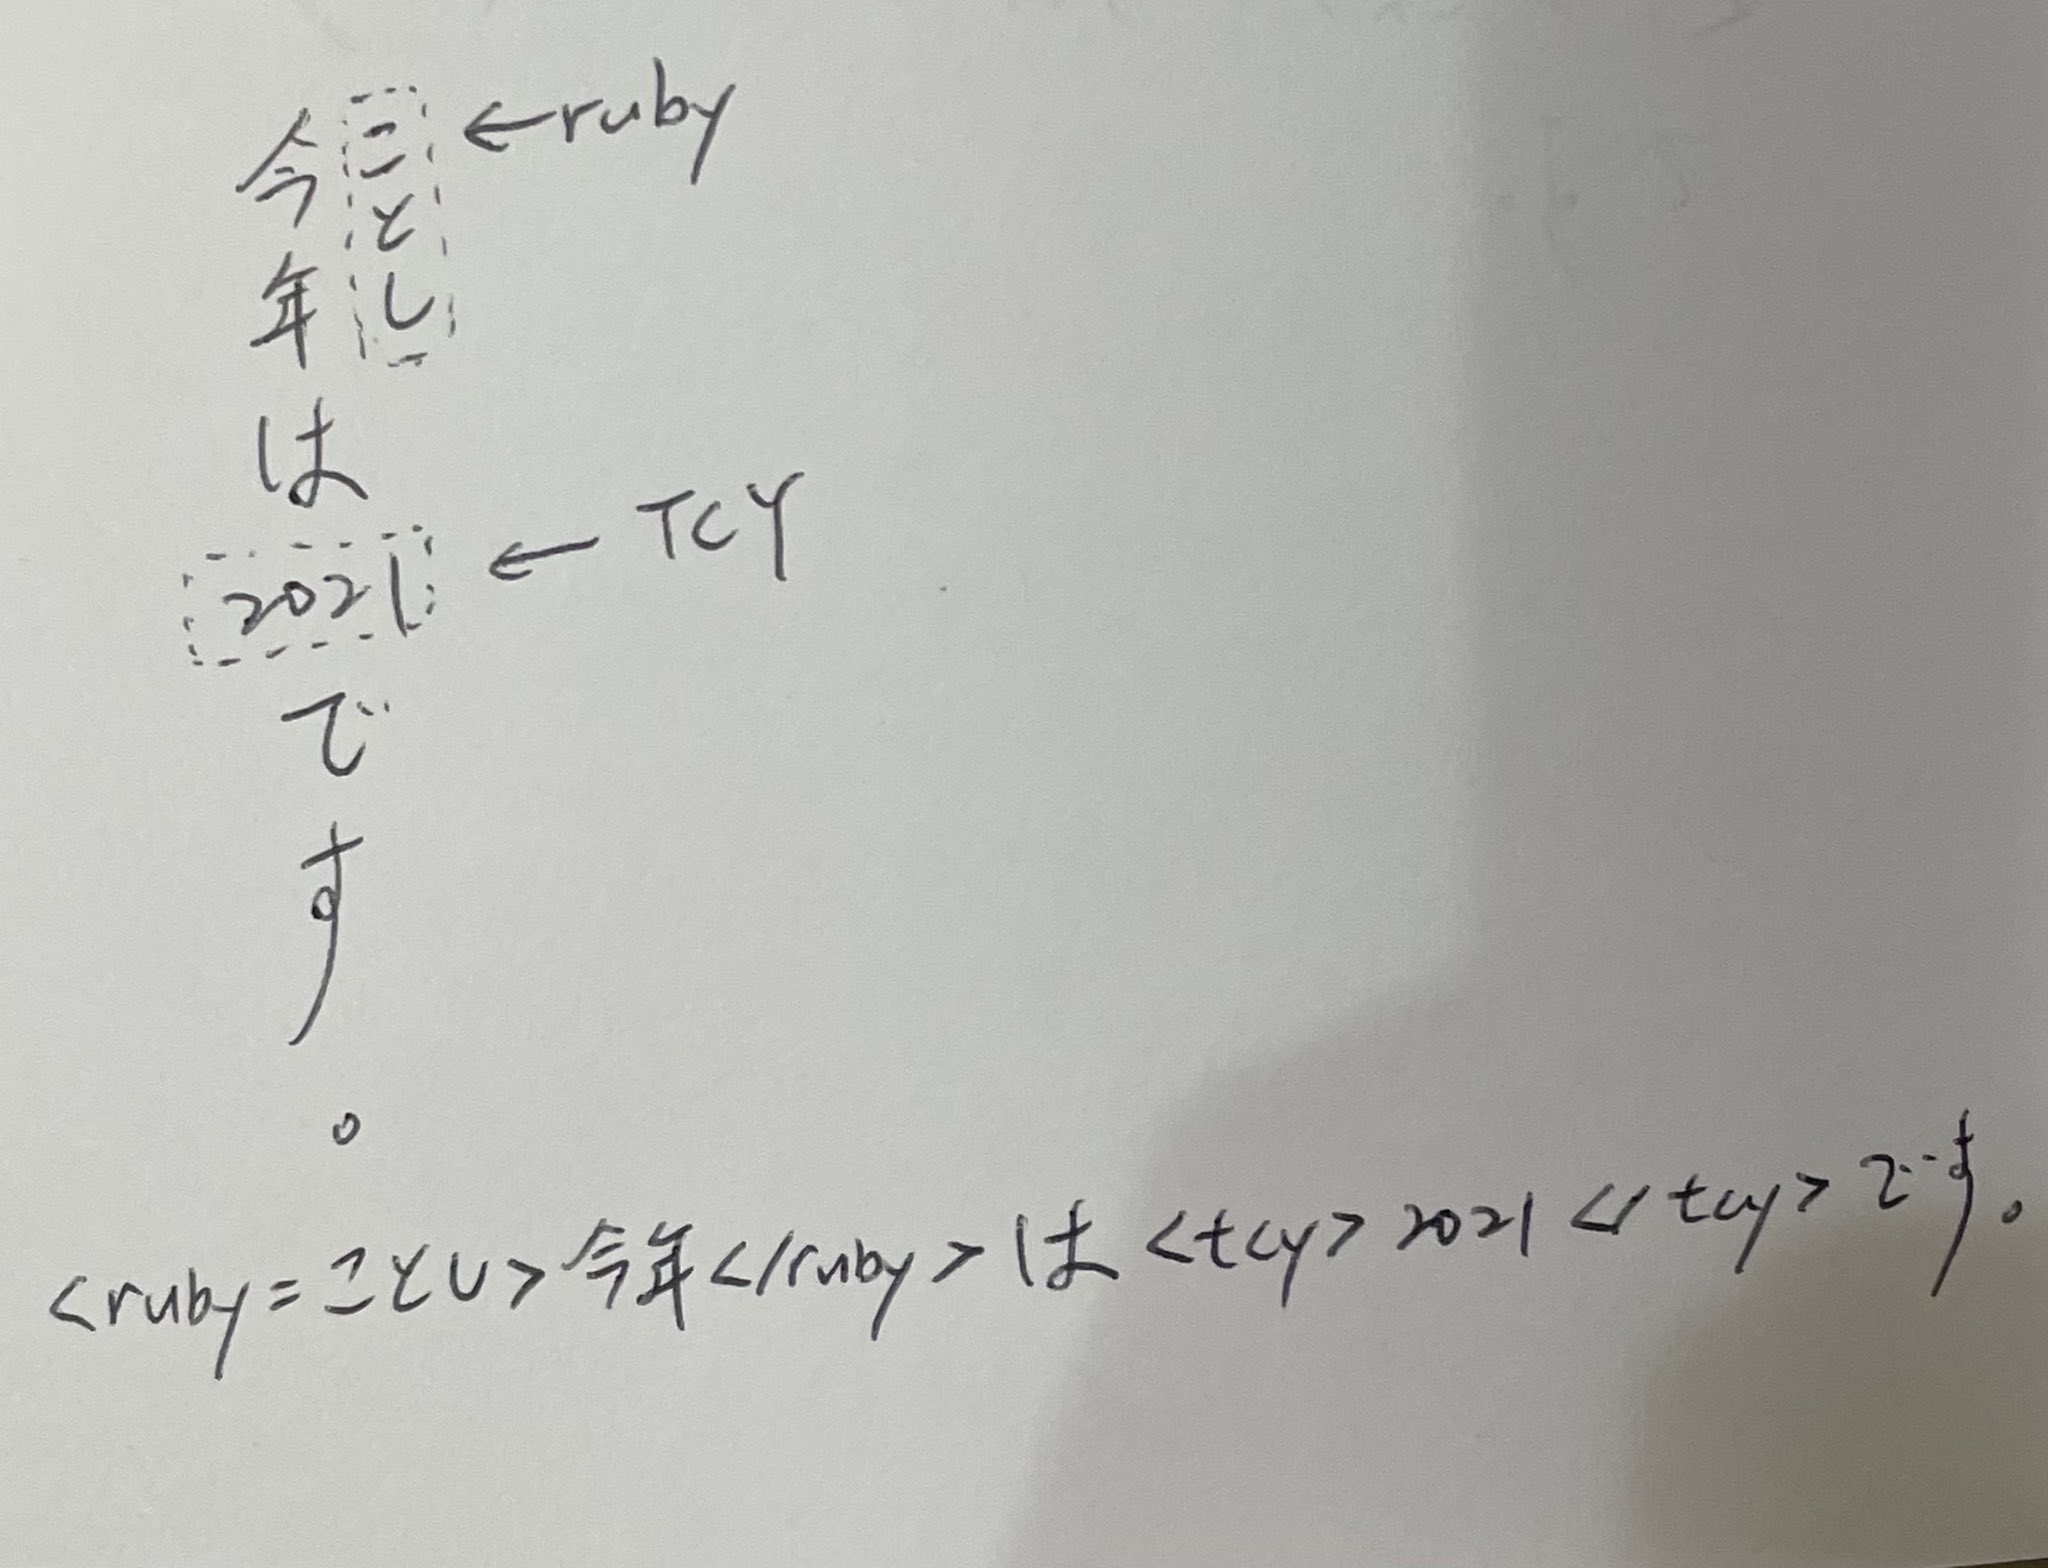 今年は2021です。
ことし
←ruby
←TCY
<ruby=ことし>今年</ruby>は<tcy>2021</tcy>です。